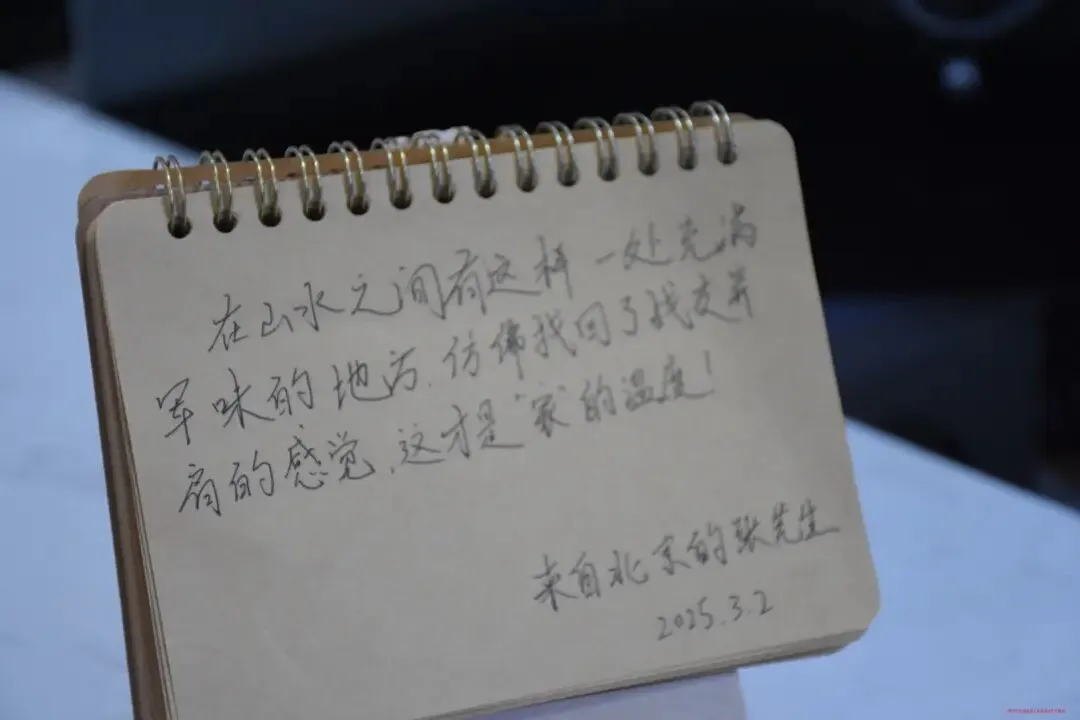 在山水之间有这样一处充满
军味的地方,仿佛找回了战友并
肩的感觉,这才是“家”的温度!
来自北京的张先生
2025.3.2